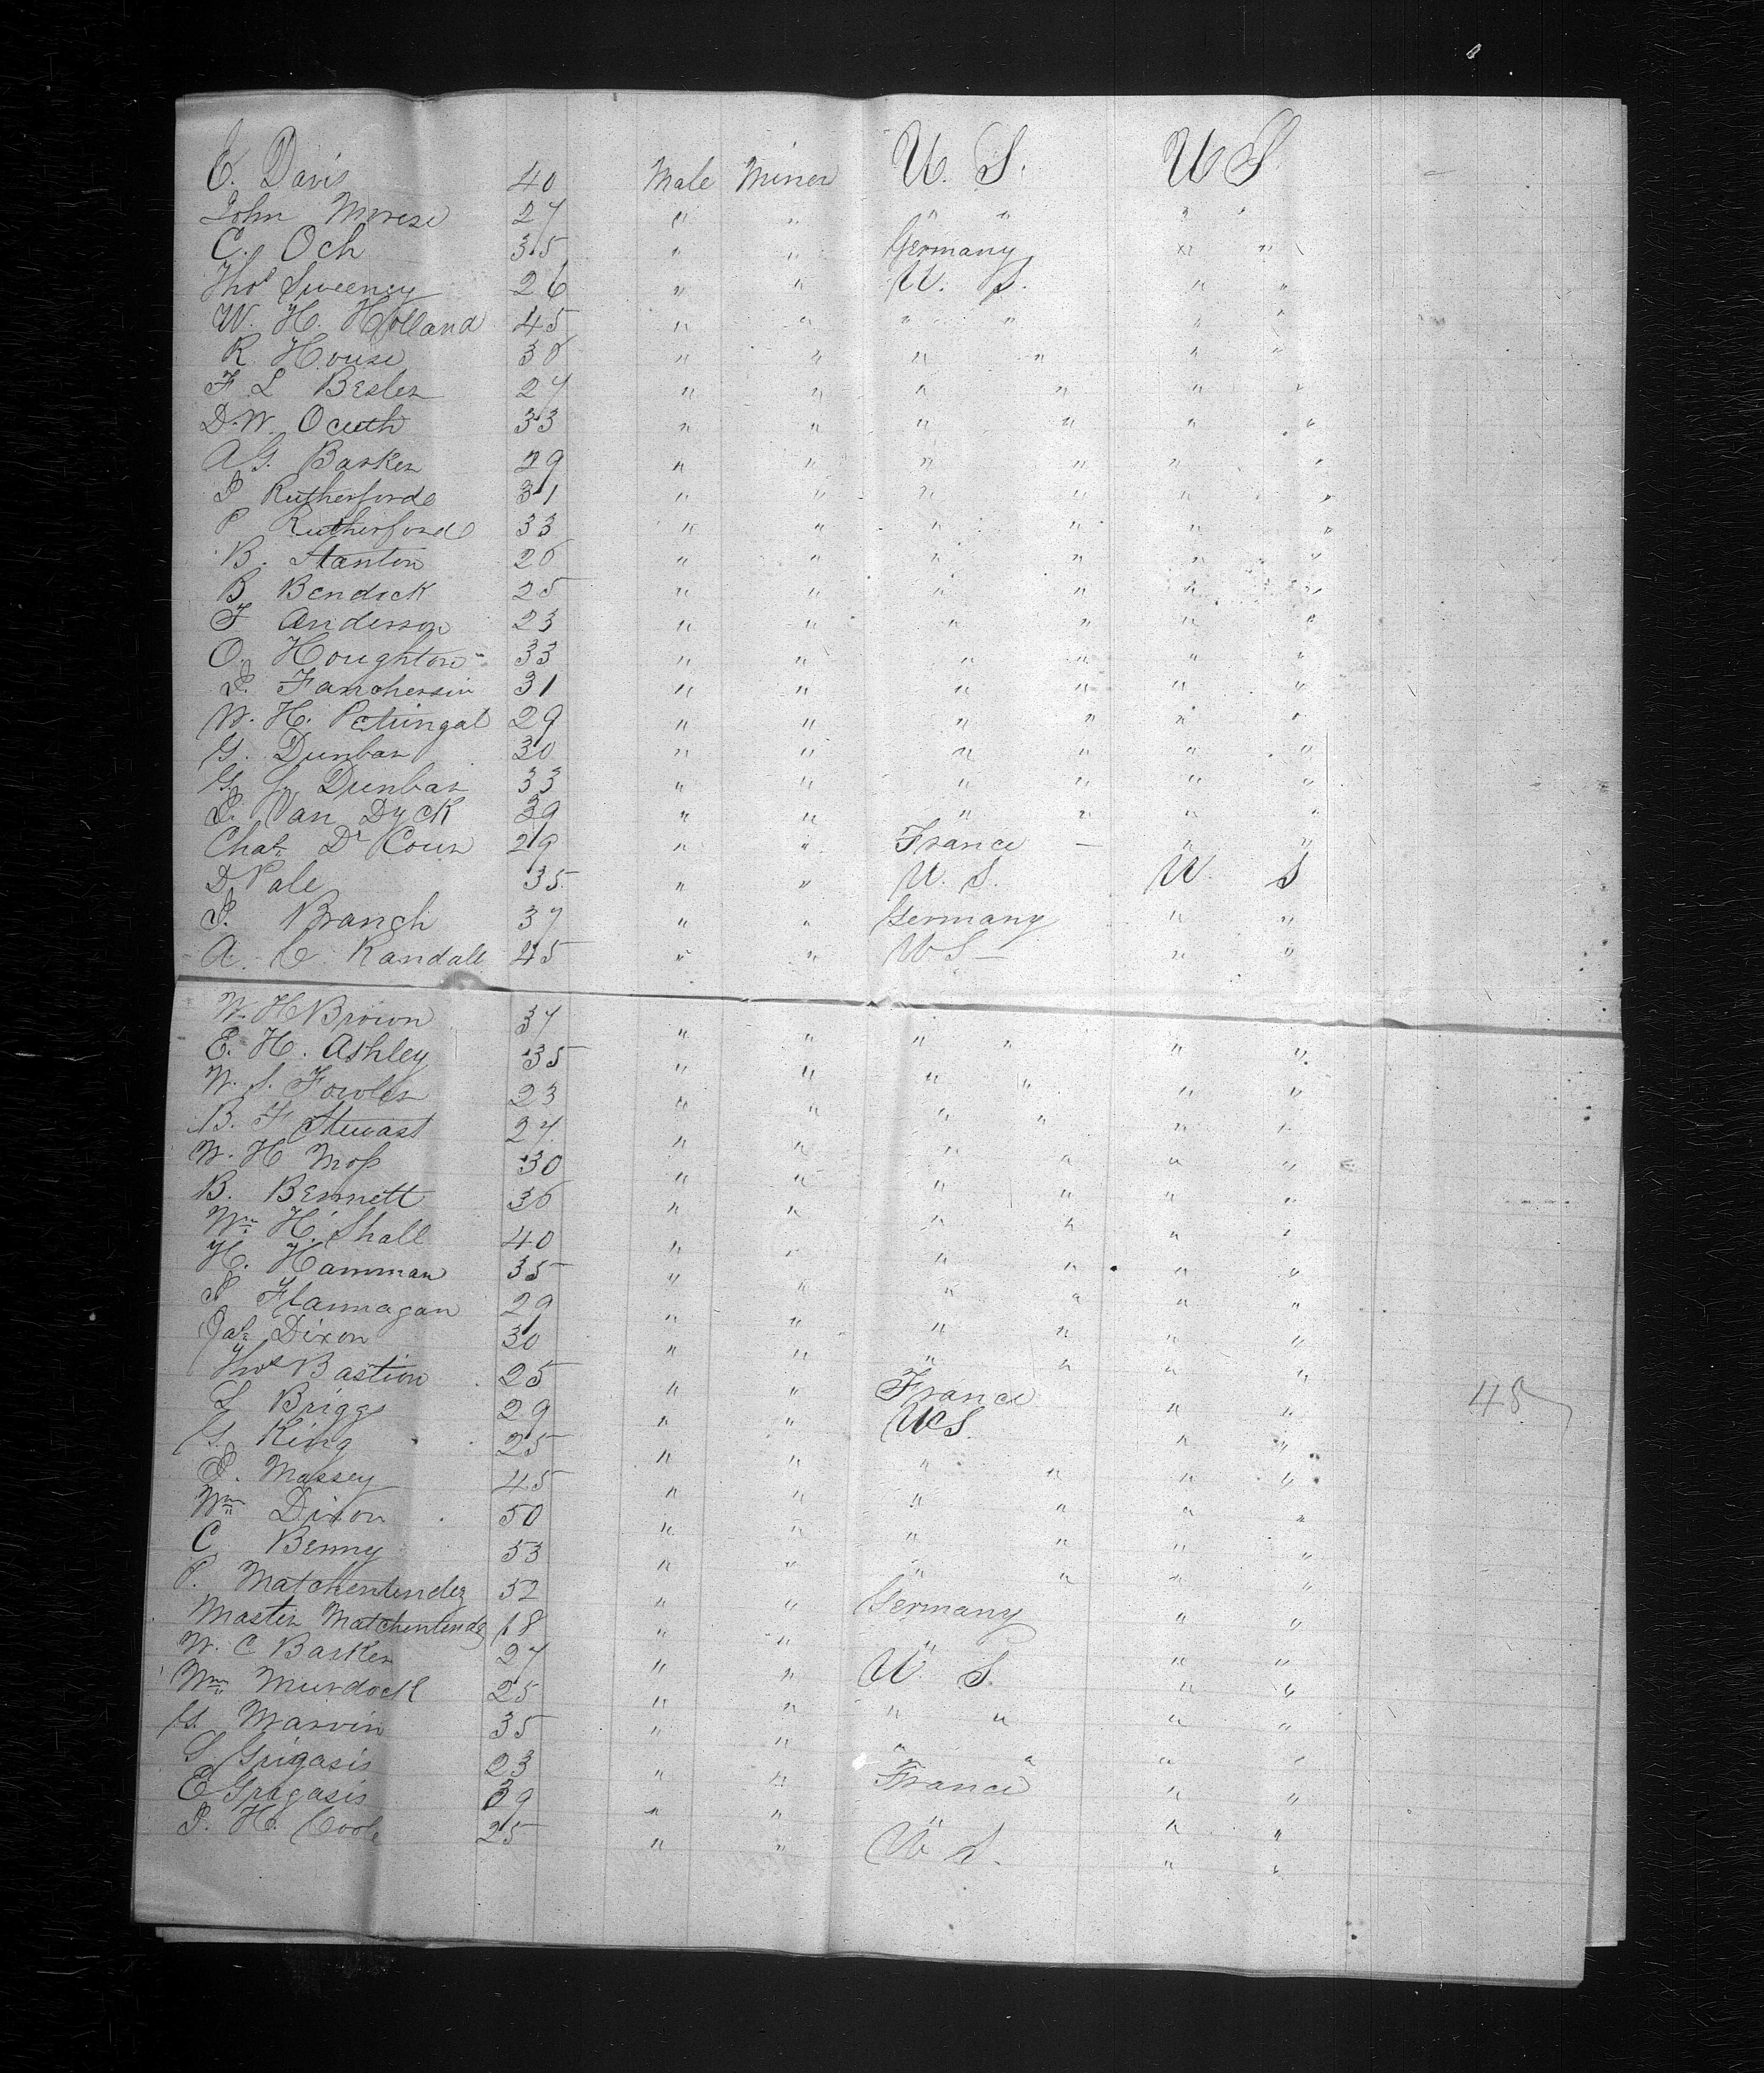 E. Davis 40 Male Miner U. S. U S
John Morese 27 " " " " " "
C. Och 35 " " Germany " "
Thos Sweeney 26 " " U. S. " "
W. H. Holland 45 " " " " " "
R. House 30 " " " " " "
F L Besler 27 " " " " " "
D. W. Ocuth 33 " " " " " "
A G. Barker 29 " " " " " "
P Rutherford 31 " " " " " "
P Rutherford 33 " " " " " "
B. Stanton 26 " " " " " "
B Bendick 25 " " " " " "
F Anderson 23 " " " " " "
O. Houghton 33 " " " " " "
P. Fanchersin 31 " " " " " "
W. H. Petingal 29 " " " " " "
G. Dunbar 30 " " " " " "
G. L. Dunbar 33 " " " " " "
P. Van Dyck 39 " " " " " "
Chas Dr Cour 29 " " France — " "
D Vale 35 " " U. S. U. S
P. Branch 37 " " Germany " "
A. C. Randall 45 " " U S — " "
W. H Brown 37 " " " " " "
E. H. Ashley 35 " " " " " "
W. S. Fowler 23 " " " " " "
B. F Stuart 27. " " " " " "
W. H Moss 30 " " " " " "
B. Bennett 36 " " " " " "
Wm H. Shall 40 " " " " " "
H. Hamman 35 " " " " " "
P Flannagan 29 " " " " " "
Jas Dixon 30 " " " " " "
Thos Bastion 25 " " France " "
L Briggs 29 " " U S. " " 48
G. King 25 " " " " " "
P. Massey 45 " " " " " "
Wm Dixon 50 " " " " " "
C. Benny 53 " " " " " "
P. Matchenlender 52 " " Germany " "
Master Matchenlender 18 " " " " "
W. C Barker 27 " " U. S. " "
Wm Murdock 25 " " " " " "
G. Marvin 35 " " " " " "
S. Grigasis 23 " " France " "
E Grigasis 39 " " " " "
P. H. Cook 25 " " U S. " "